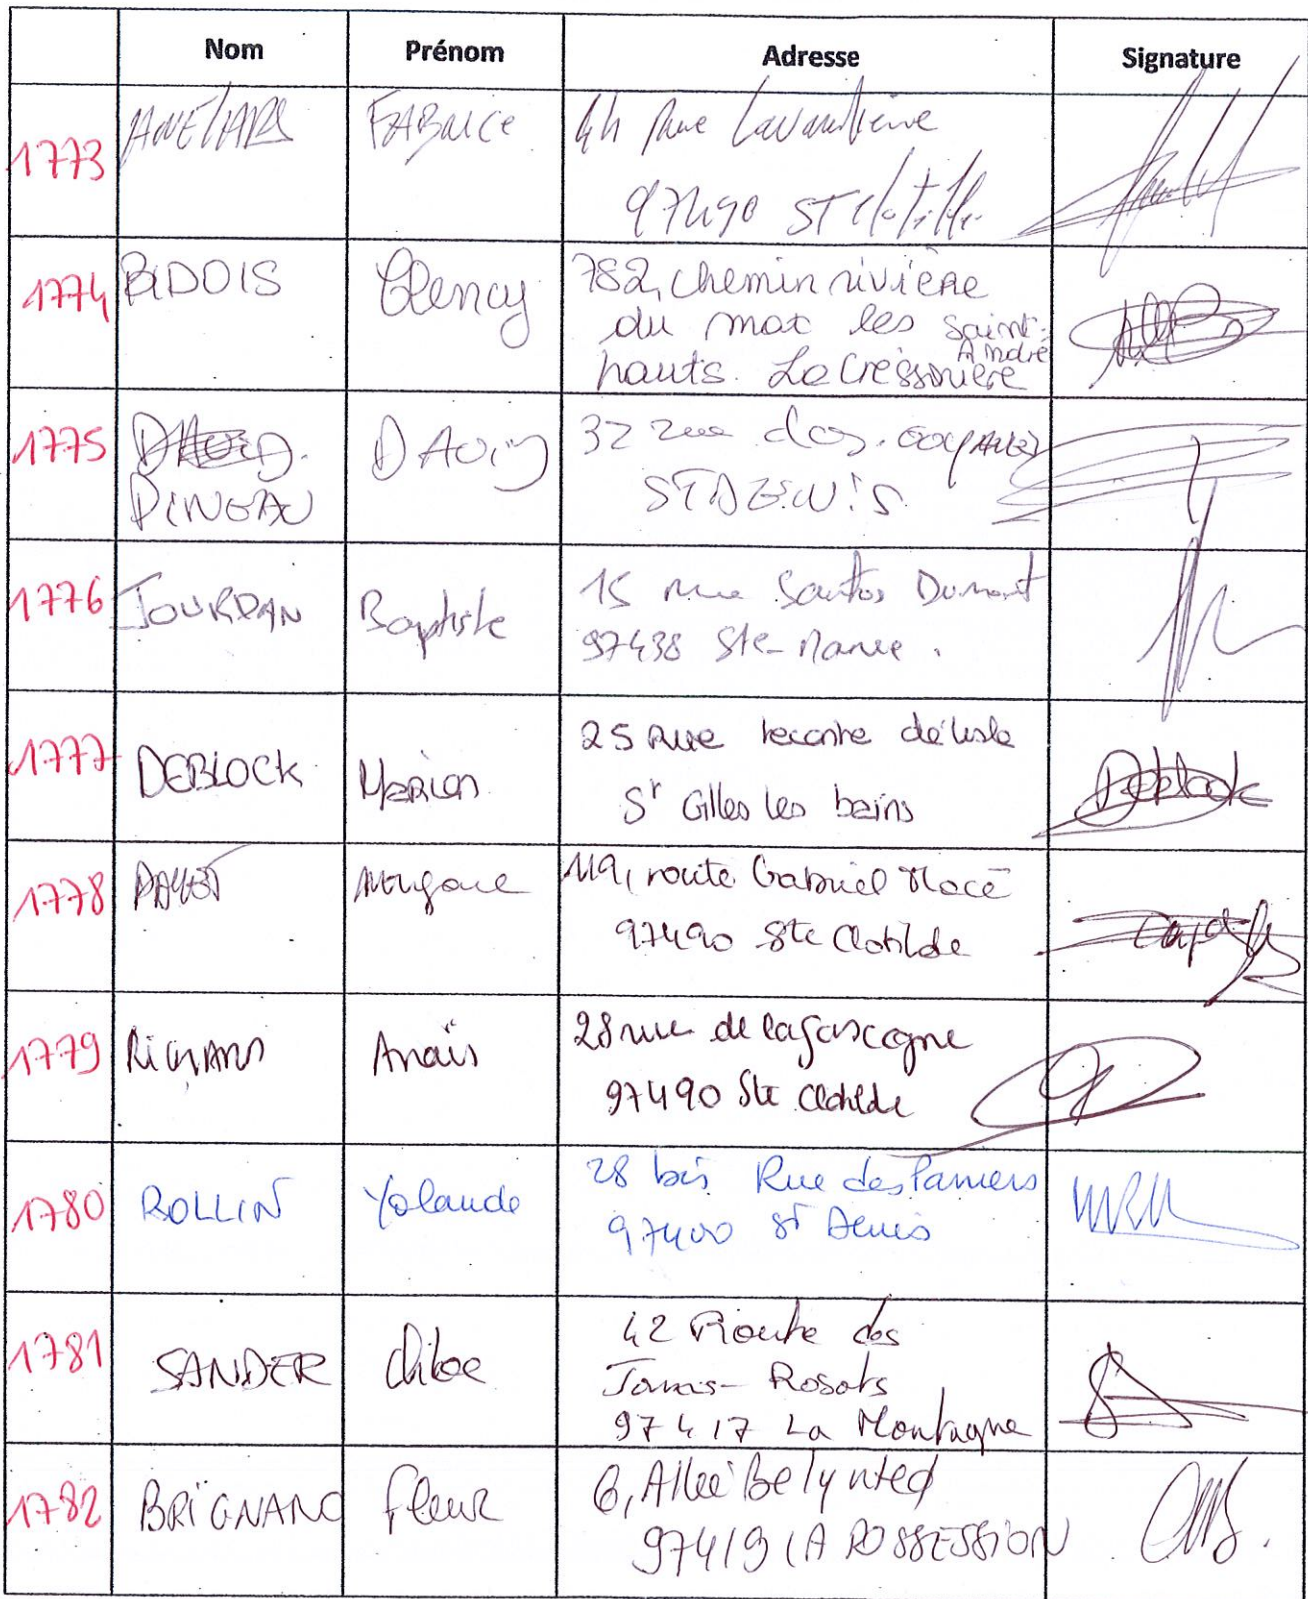 Nom Prénom Adresse Signature
1773 FABRICE 44 Rue
97490 ST Clotilde
1774 BIDOIS Clency 782, chemin rivière
du mat les Saint-
André
hauts. La Cressonière
1775 DAVID 32 rue des
DINEAU ST DENIS
1776 JOURDAN Baptiste 15 rue Santos Dumont
97438 Ste-Marie.
1777 DEBLOCK Marion 25 Rue leconte délisle
St Gilles les bains Deblock
1778 PAYET Morgane 119, route Gabriel Macé
97490 Ste Clotilde
1779 Anaïs 28 rue de la gascogne
97490 Ste Clotilde
1780 ROLLIN Yolande 28 bis Rue des Lamiers
97400 St Denis
1781 SANDER Chloe 42 Route des
Tamas- Rosats
97417 La Montagne
1782 BRIGNAND Fleur 6, Allée
97419 LA POSSESSION